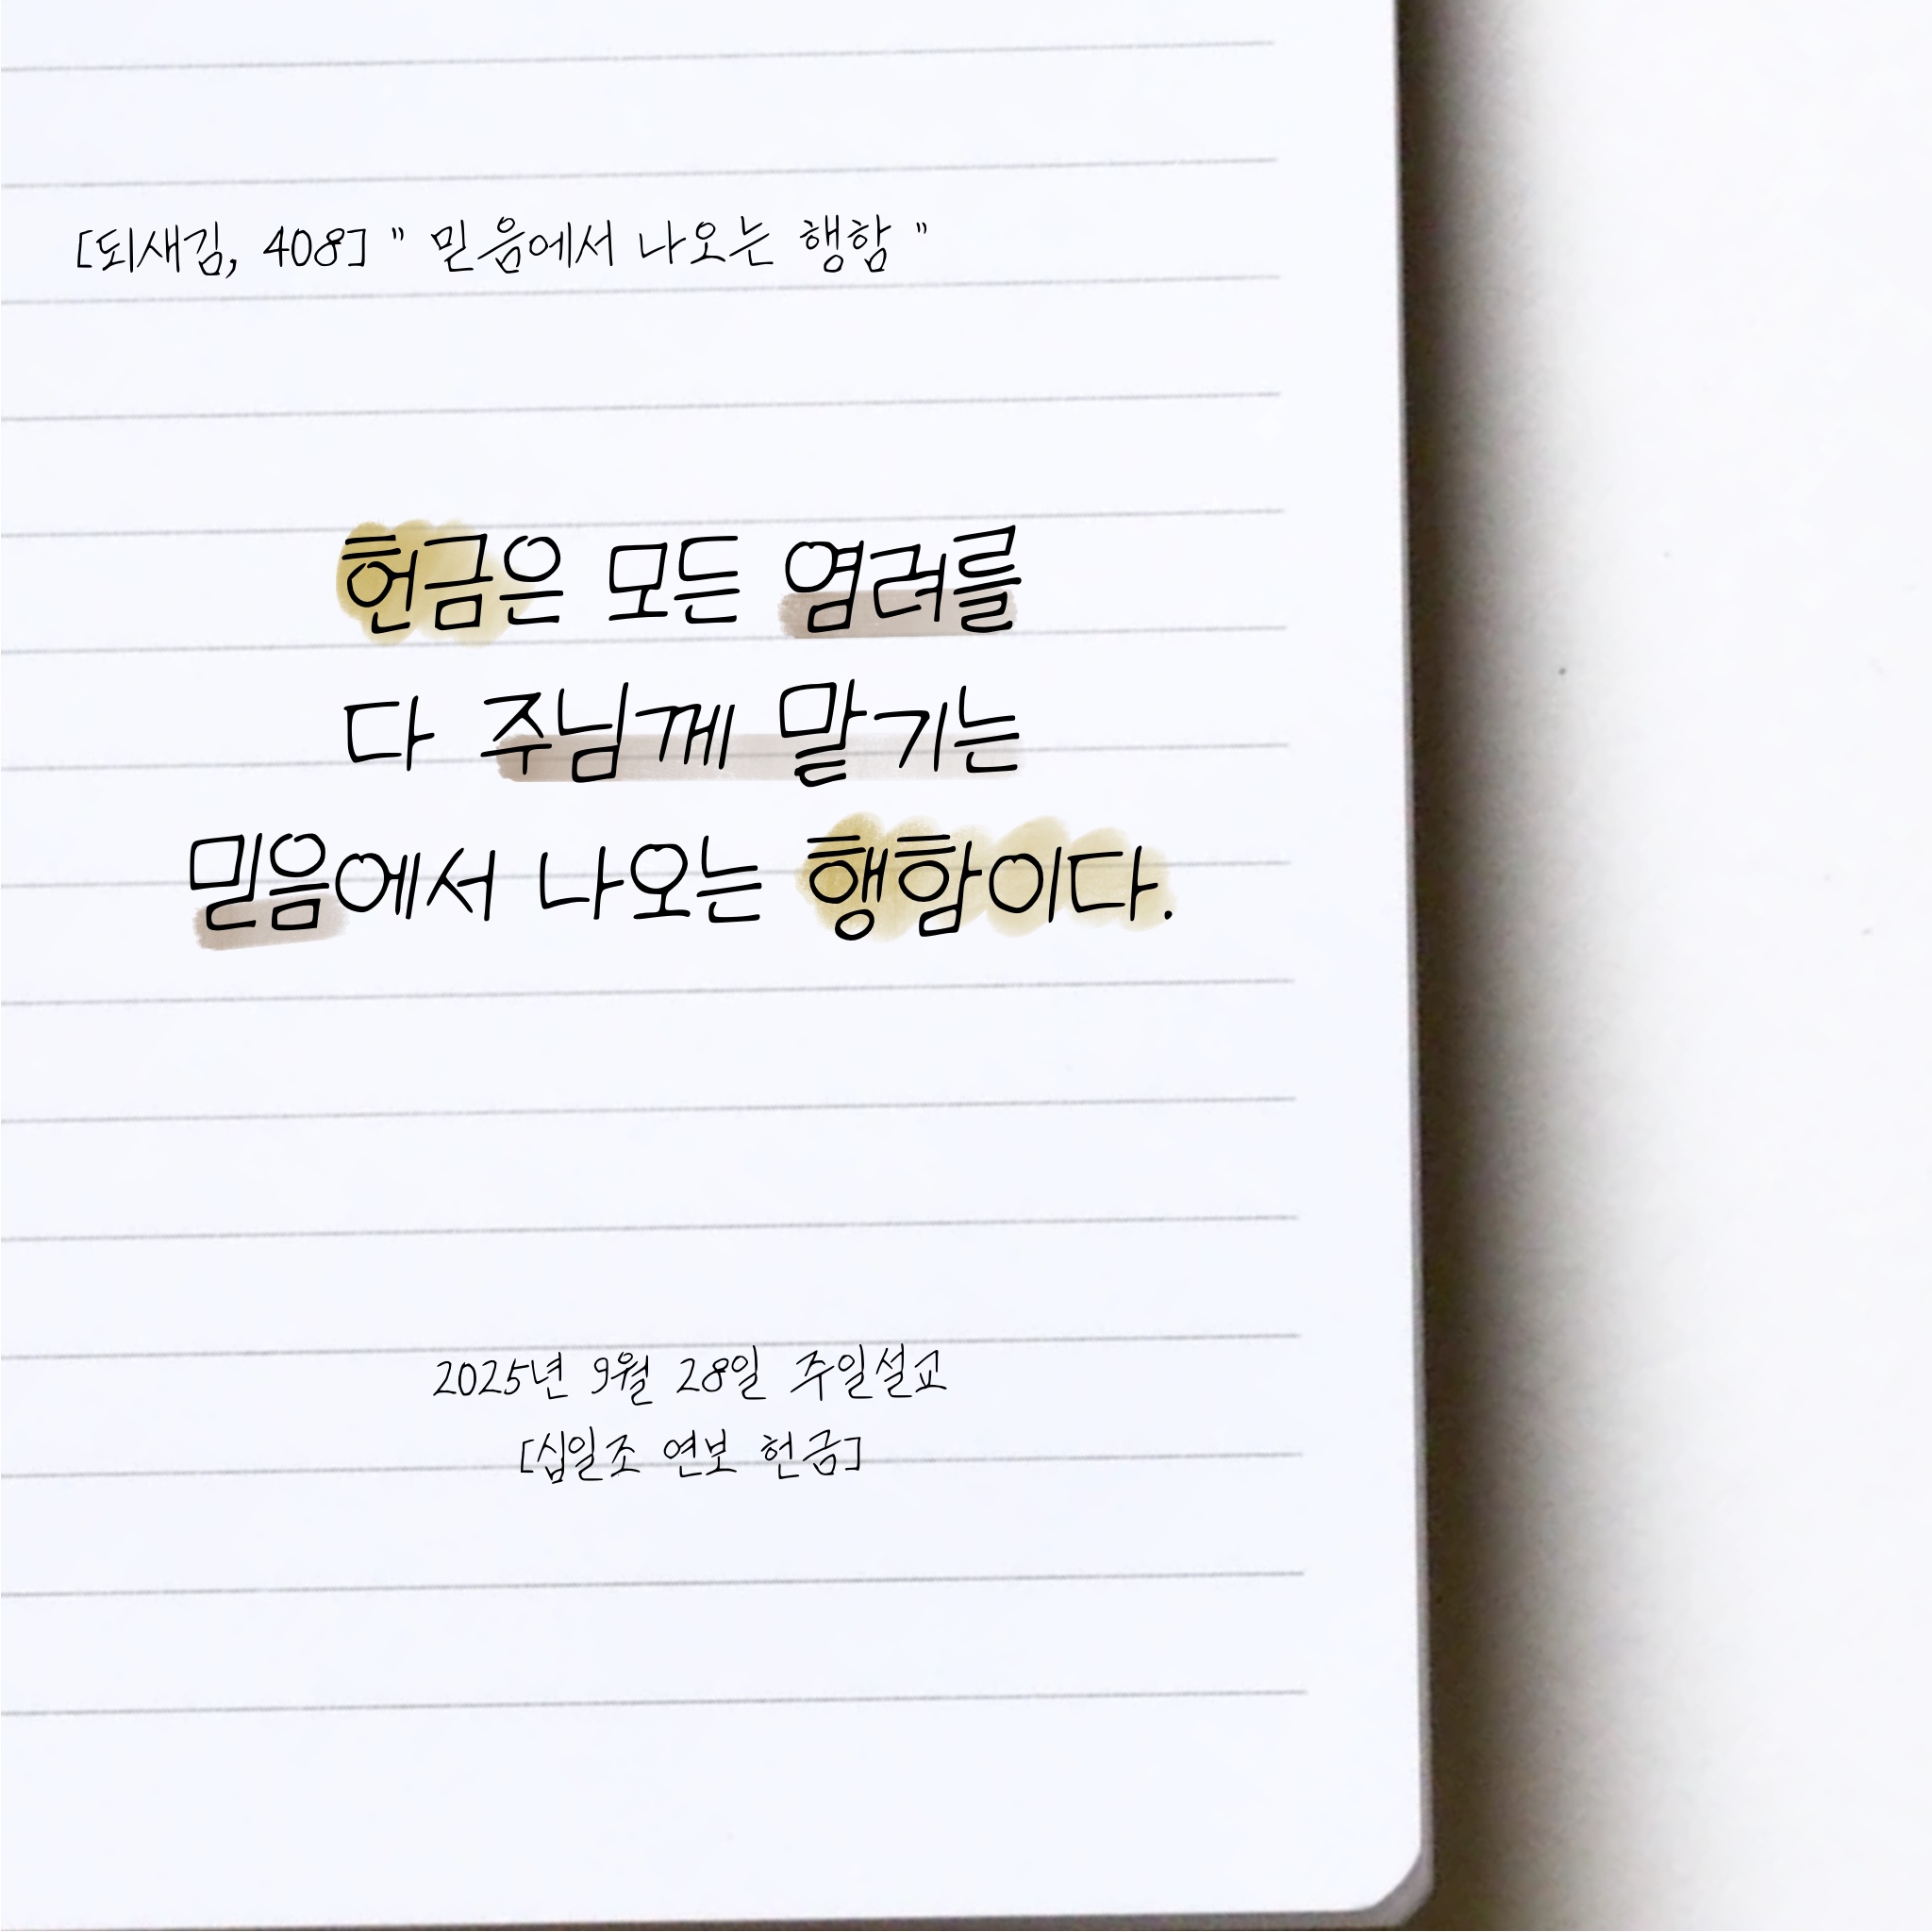 [되새김, 408] " 믿음에서 나오는 행함 "
헌금은 모든 염려를
다 주님께 맡기는
믿음에서 나오는 행함이다.
2025년 9월 28일 주일설교
[십일조 연보 헌금]